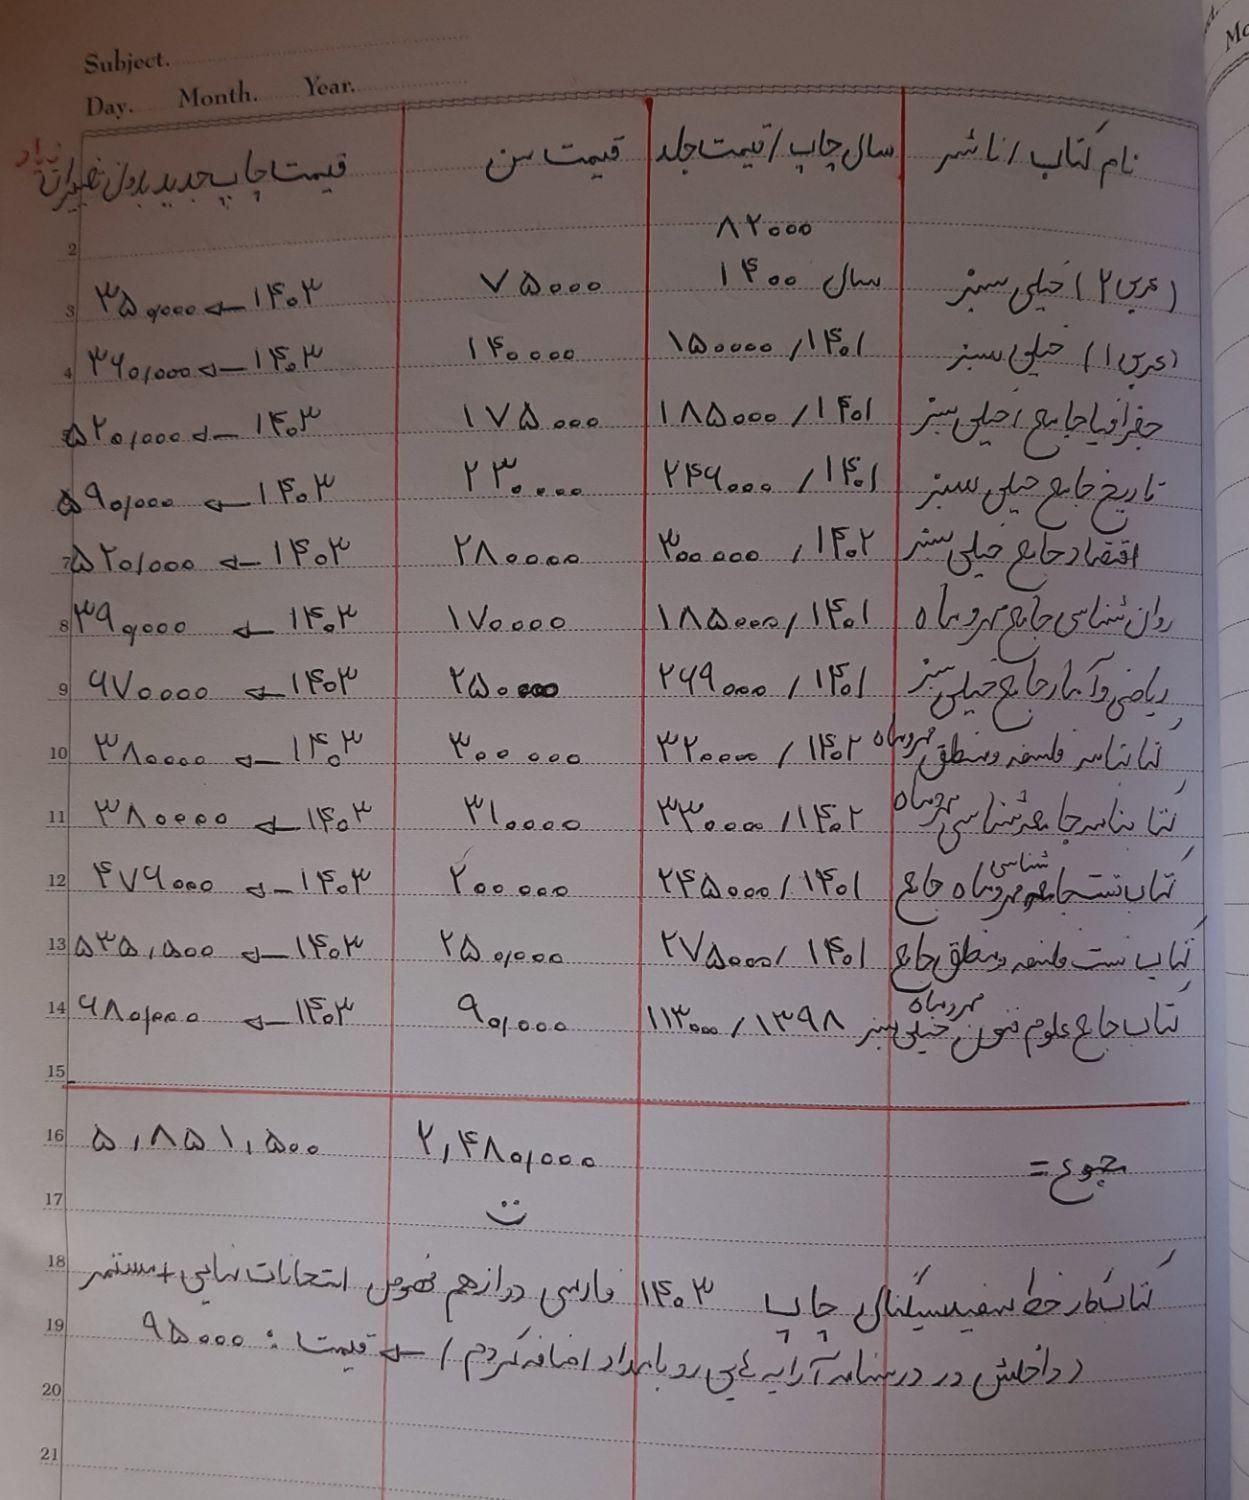 Subject.
Day. Month. Year.
نام کتاب / ناشر سال چاپ / قیمت جلد قیمت من قیمت چاپ جدید بدون تغییرات زیاد
۸۲۰۰۰
2
(عربی ۲) خیلی سبز سال ۱۴۰۰ ۷۵۰۰۰ ۱۴۰۳ ← ۳۵۰,۰۰۰ 3
(عربی ۱) خیلی سبز ۱۴۰۱ / ۱۵۰۰۰۰ ۱۴۰۰۰۰ ۱۴۰۳ ← ۳۶۰,۰۰۰ 4
جغرافیا جامع / خیلی سبز ۱۴۰۱ / ۱۸۵۰۰۰ ۱۷۵۰۰۰ ۱۴۰۳ ← ۵۲۰,۰۰۰
تاریخ جامع خیلی سبز ۱۴۰۱ / ۲۴۶۰۰۰ ۲۳۰۰۰۰ ۱۴۰۳ ← ۵۹۰,۰۰۰
اقتصاد جامع خیلی سبز ۱۴۰۲ / ۳۰۰۰۰۰ ۲۸۰۰۰۰ ۱۴۰۳ ← ۵۲۰,۰۰۰ 7
روان شناسی جامع مهروماه ۱۴۰۱ / ۱۸۵۰۰۰ ۱۷۰۰۰۰ ۱۴۰۳ ← ۳۹۰,۰۰۰ 8
ریاضی و آمار جامع خیلی سبز ۱۴۰۱ / ۲۶۹۰۰۰ ۲۵۰۰۰۰ ۱۴۰۳ ← ۶۷۰۰۰۰ 9
کتابنامه فلسفه و منطق مهروماه ۱۴۰۲ / ۳۲۰۰۰۰ ۳۰۰۰۰۰ ۱۴۰۳ ← ۳۸۰۰۰۰ 10
کتابنامه جامعه شناسی مهروماه ۱۴۰۲ / ۳۳۰۰۰۰ ۳۱۰۰۰۰ ۱۴۰۳ ← ۳۸۰۰۰۰ 11
کتاب تست جامعه شناسی مهروماه جامع ۱۴۰۱ / ۲۴۵۰۰۰ ۲۰۰۰۰۰ ۱۴۰۳ ← ۴۷۶۰۰۰ 12
کتاب تست فلسفه و منطق جامع مهروماه ۱۴۰۱ / ۲۷۵۰۰۰ ۲۵۰,۰۰۰ ۱۴۰۳ ← ۵۳۵,۵۰۰ 13
کتاب جامع علوم فنون خیلی سبز ۱۳۹۸ / ۱۱۳۰۰۰ ۹۰,۰۰۰ ۱۴۰۳ ← ۶۸۰,۰۰۰ 14
15
مجموع = ۲,۴۸۰,۰۰۰ ۵,۸۵۱,۵۰۰ 16
17
کتاب کار خط سفید سیگنال چاپ ۱۴۰۳ فارسی دوازدهم مخصوص امتحانات نهایی + مستمر 18
(داخلش در درسنامه آرایه هایی رو با مداد اضافه کردم) ← قیمت : ۹۵۰۰۰ 19
20
21